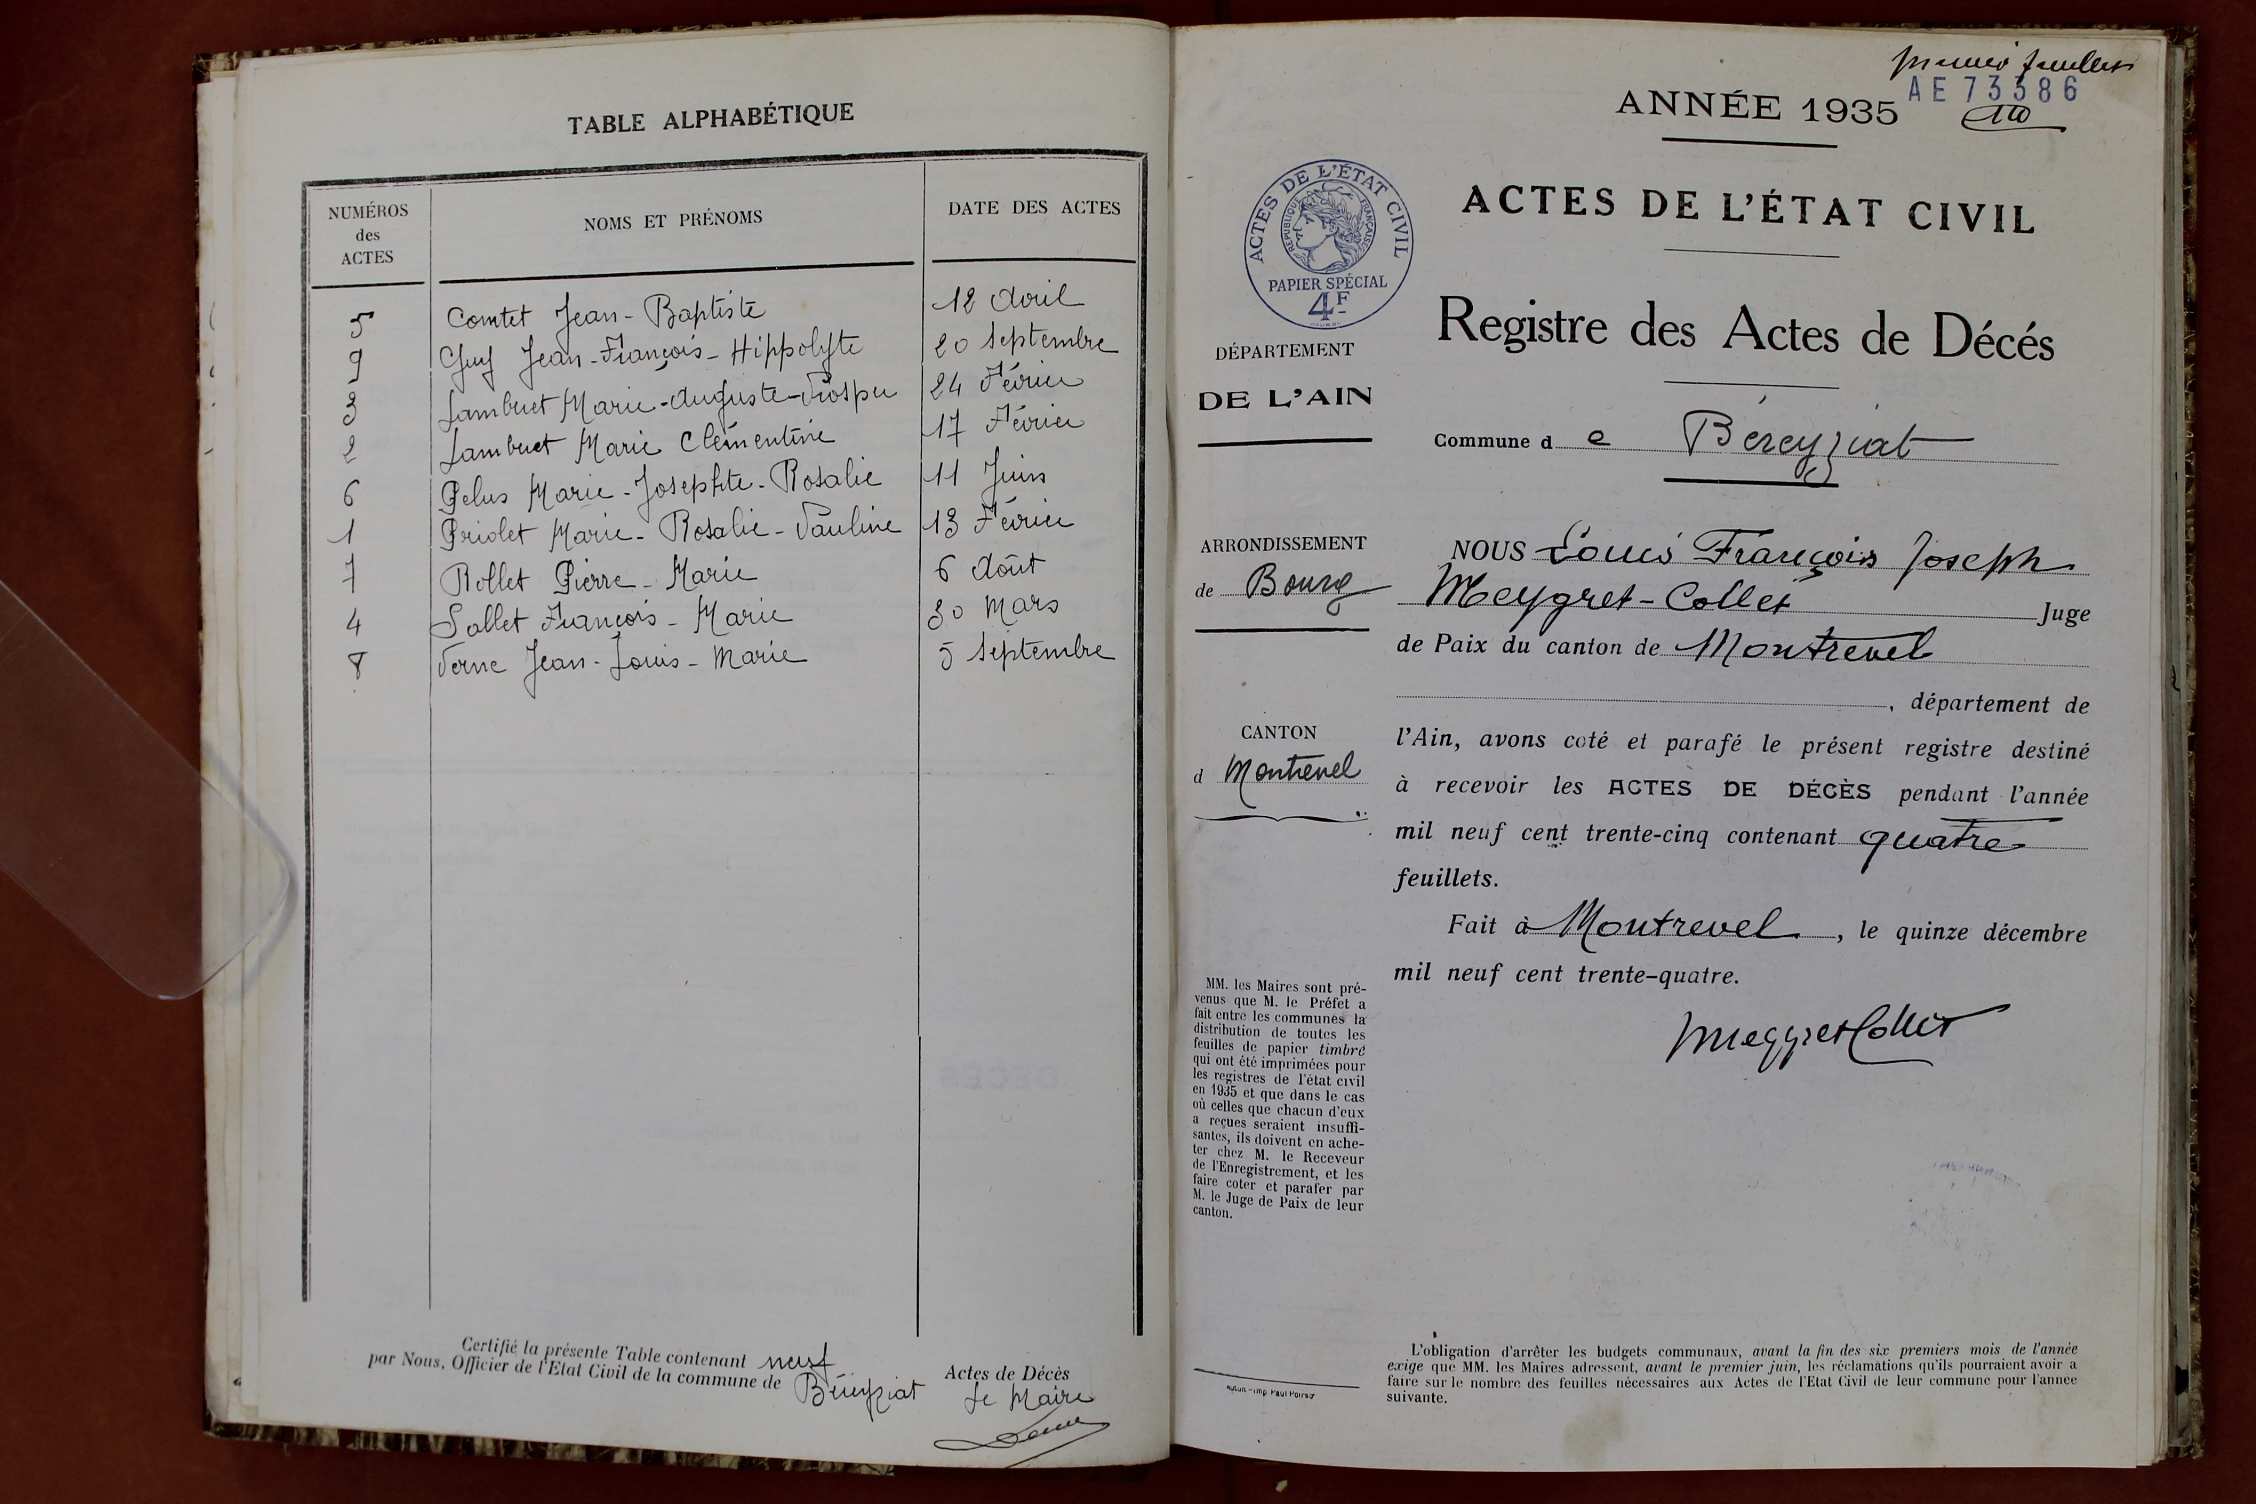 TABLE ALPHABÉTIQUE
NUMÉROS des ACTES NOMS ET PRÉNOMS DATE DES ACTES
5 Comtet Jean-Baptiste 12 Avril
9 Guy Jean-François-Hippolyte 20 Septembre
3 Lambert Marie-Auguste-Prosper 24 Février
2 Lambert Marie Clémentine 17 Février
6 Pelus Marie-Josephte-Rosalie 11 Juin
1 Priolet Marie-Rosalie-Pauline 13 Février
7 Rollet Pierre-Marie 6 Août
4 Sallet François-Marie 30 Mars
8 Verne Jean-Louis-Marie 5 Septembre
Certifié la présente Table contenant neuf Actes de Décès
par Nous, Officier de l'Etat Civil de la commune de Béreyziat
Le Maire
premier feuillet
AE 73386
ANNÉE 1935
ACTES DE L'ÉTAT CIVIL
RÉPUBLIQUE FRANÇAISE
PAPIER SPÉCIAL
4F
ACTES DE L'ÉTAT CIVIL
Registre des Actes de Décés
DÉPARTEMENT
DE L'AIN
Commune d e Béreyziat
ARRONDISSEMENT
de Bourg
CANTON
d Montrevel
NOUS Louis François Joseph
Meygret-Collet Juge
de Paix du canton de Montrevel
, département de
l'Ain, avons coté et parafé le présent registre destiné
à recevoir les ACTES DE DÉCÈS pendant l'année
mil neuf cent trente-cinq contenant quatre
feuillets.
Fait à Montrevel, le quinze décembre
mil neuf cent trente-quatre.
Meygret Collet
MM. les Maires sont pré-
venus que M. le Préfet a
fait entre les communes la
distribution de toutes les
feuilles de papier timbré
qui ont été imprimées pour
les registres de l'état civil
en 1935 et que dans le cas
où celles que chacun d'eux
a reçues seraient insuffi-
santes, ils doivent en ache-
ter chez M. le Receveur
de l'Enregistrement, et les
faire coter et parafer par
M. le Juge de Paix de leur
canton.
Autun - Imp. Paul Poirson
L'obligation d'arrêter les budgets communaux, avant la fin des six premiers mois de l'année
exige que MM. les Maires adressent, avant le premier juin, les réclamations qu'ils pourraient avoir à
faire sur le nombre des feuilles nécessaires aux Actes de l'Etat Civil de leur commune pour l'année
suivante.